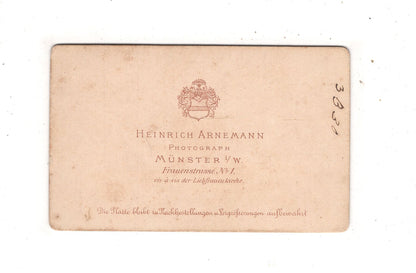 HEINRICH ARNEMANN
PHOTOGRAPH
MÜNSTER i/W.
Frauenstrasse, No 1.
vis-à-vis der Liebfrauenkirche.
Die Platte bleibt zu Nachbestellungen u. Vergrösserungen aufbewahrt